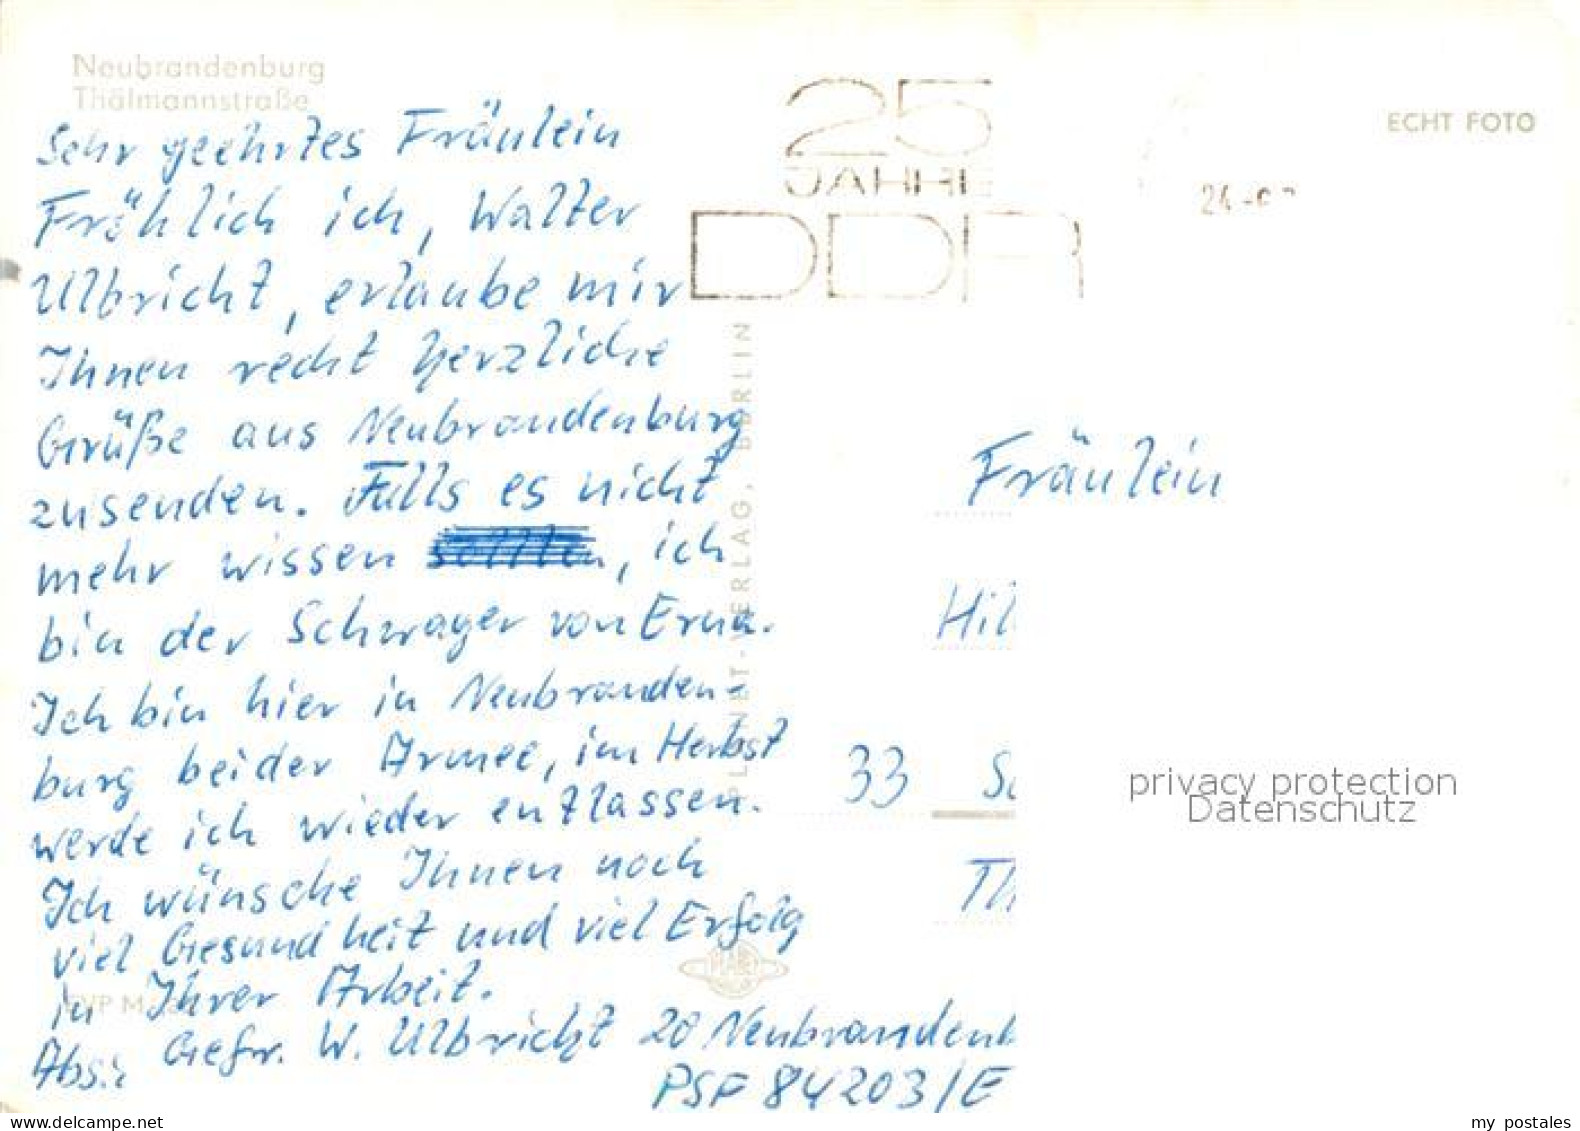 Neubrandenburg
Thälmannstraße
25
JAHRE
DDR
24
ECHT FOTO
Sehr geehrtes Fräulein
Fröhlich ich, Walter
Ulbricht, erlaube mir
Ihnen recht herzliche
Grüße aus Neubrandenburg
zusenden. Falls es nicht
mehr wissen sollten, ich
bin der Schwager von Erna.
Ich bin hier in Neubranden-
burg bei der Armee, im Herbst
werde ich wieder entlassen.
Ich wünsche Ihnen noch
viel Gesundheit und viel Erfolg
in Ihrer Arbeit.
Abs.: Gefr. W. Ulbricht 20 Neubrandenb
PSF 84203/E
PLANET-VERLAG, BERLIN
PLANET
EVP M
Fräulein
Hil
33 Sc
Th
privacy protection
Datenschutz
www.delcampe.net
my_postales